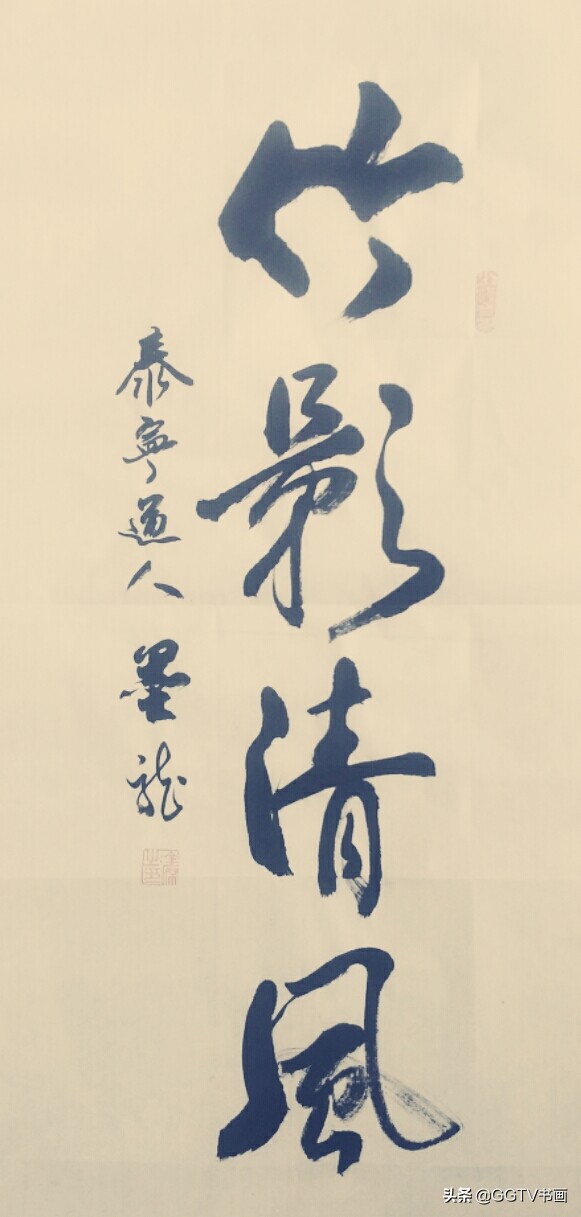 竹影清風
泰寧道人 墨龍
头条 @GGTV书画